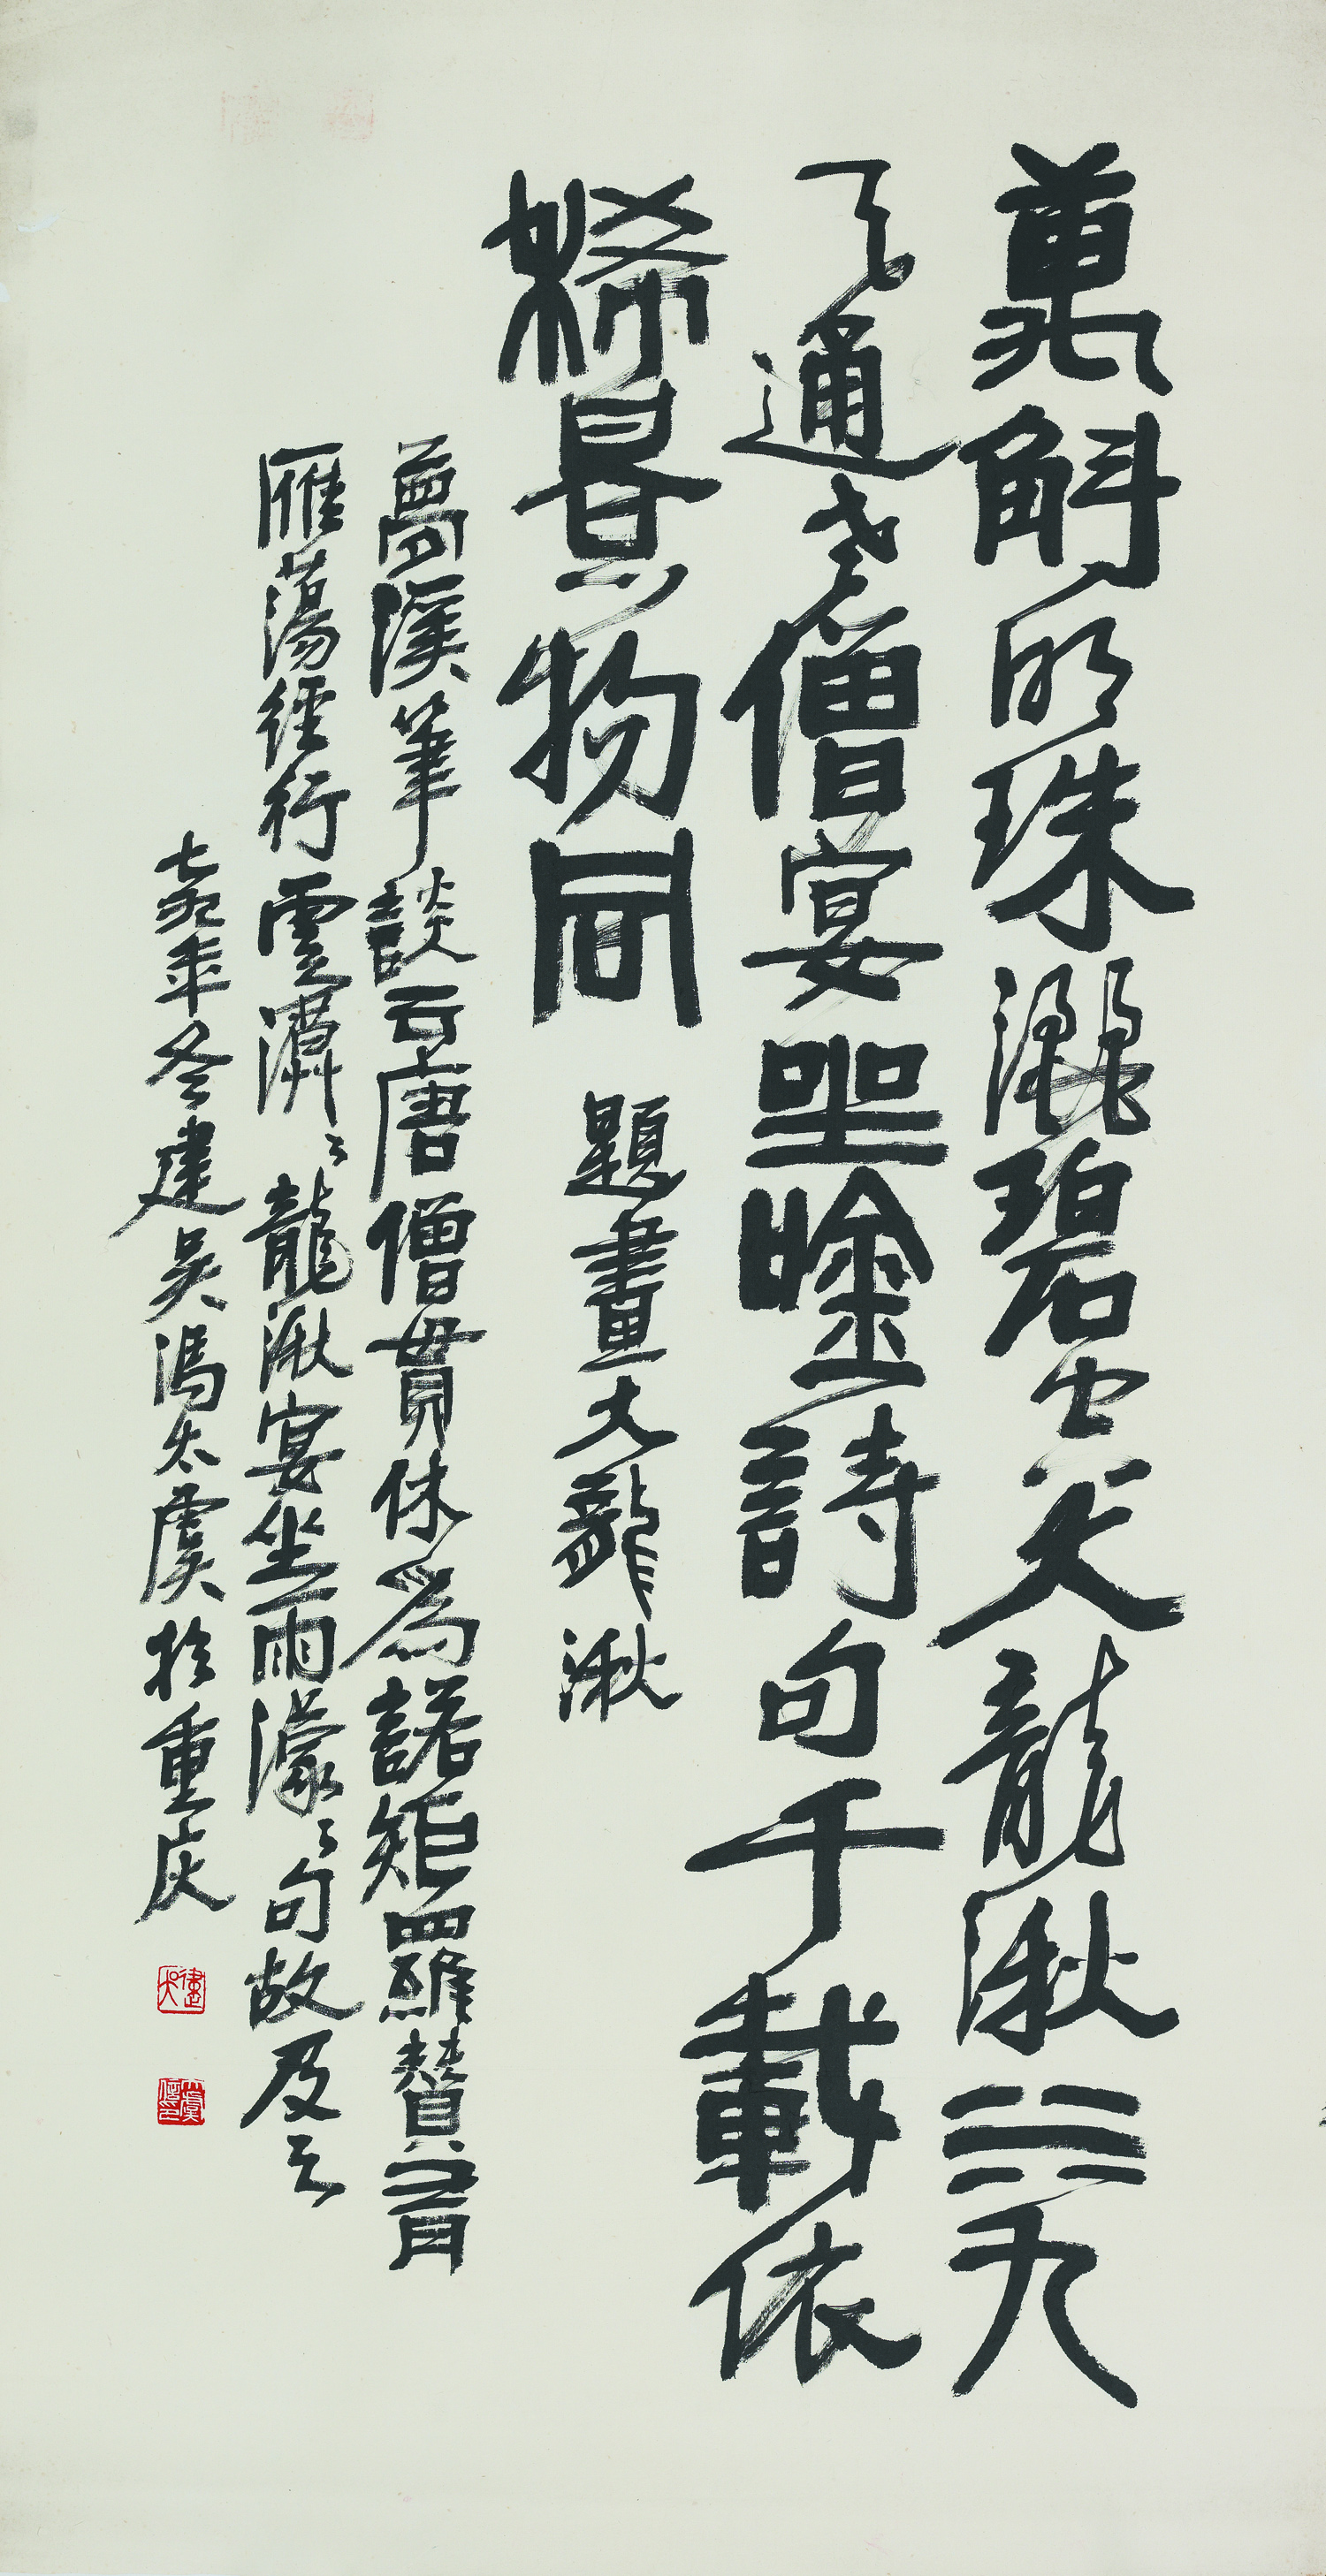 萬斛明珠灑碧空大龍湫水九
天通老僧宴坐唫詩句千載依
稀景物同 題畫大龍湫
夢溪筆談云唐僧貫休為諾矩羅贊有
雁蕩經行雲漭々龍湫宴坐雨濛々句故及之
七玖年冬建吳馮太虞於重庆
建吳